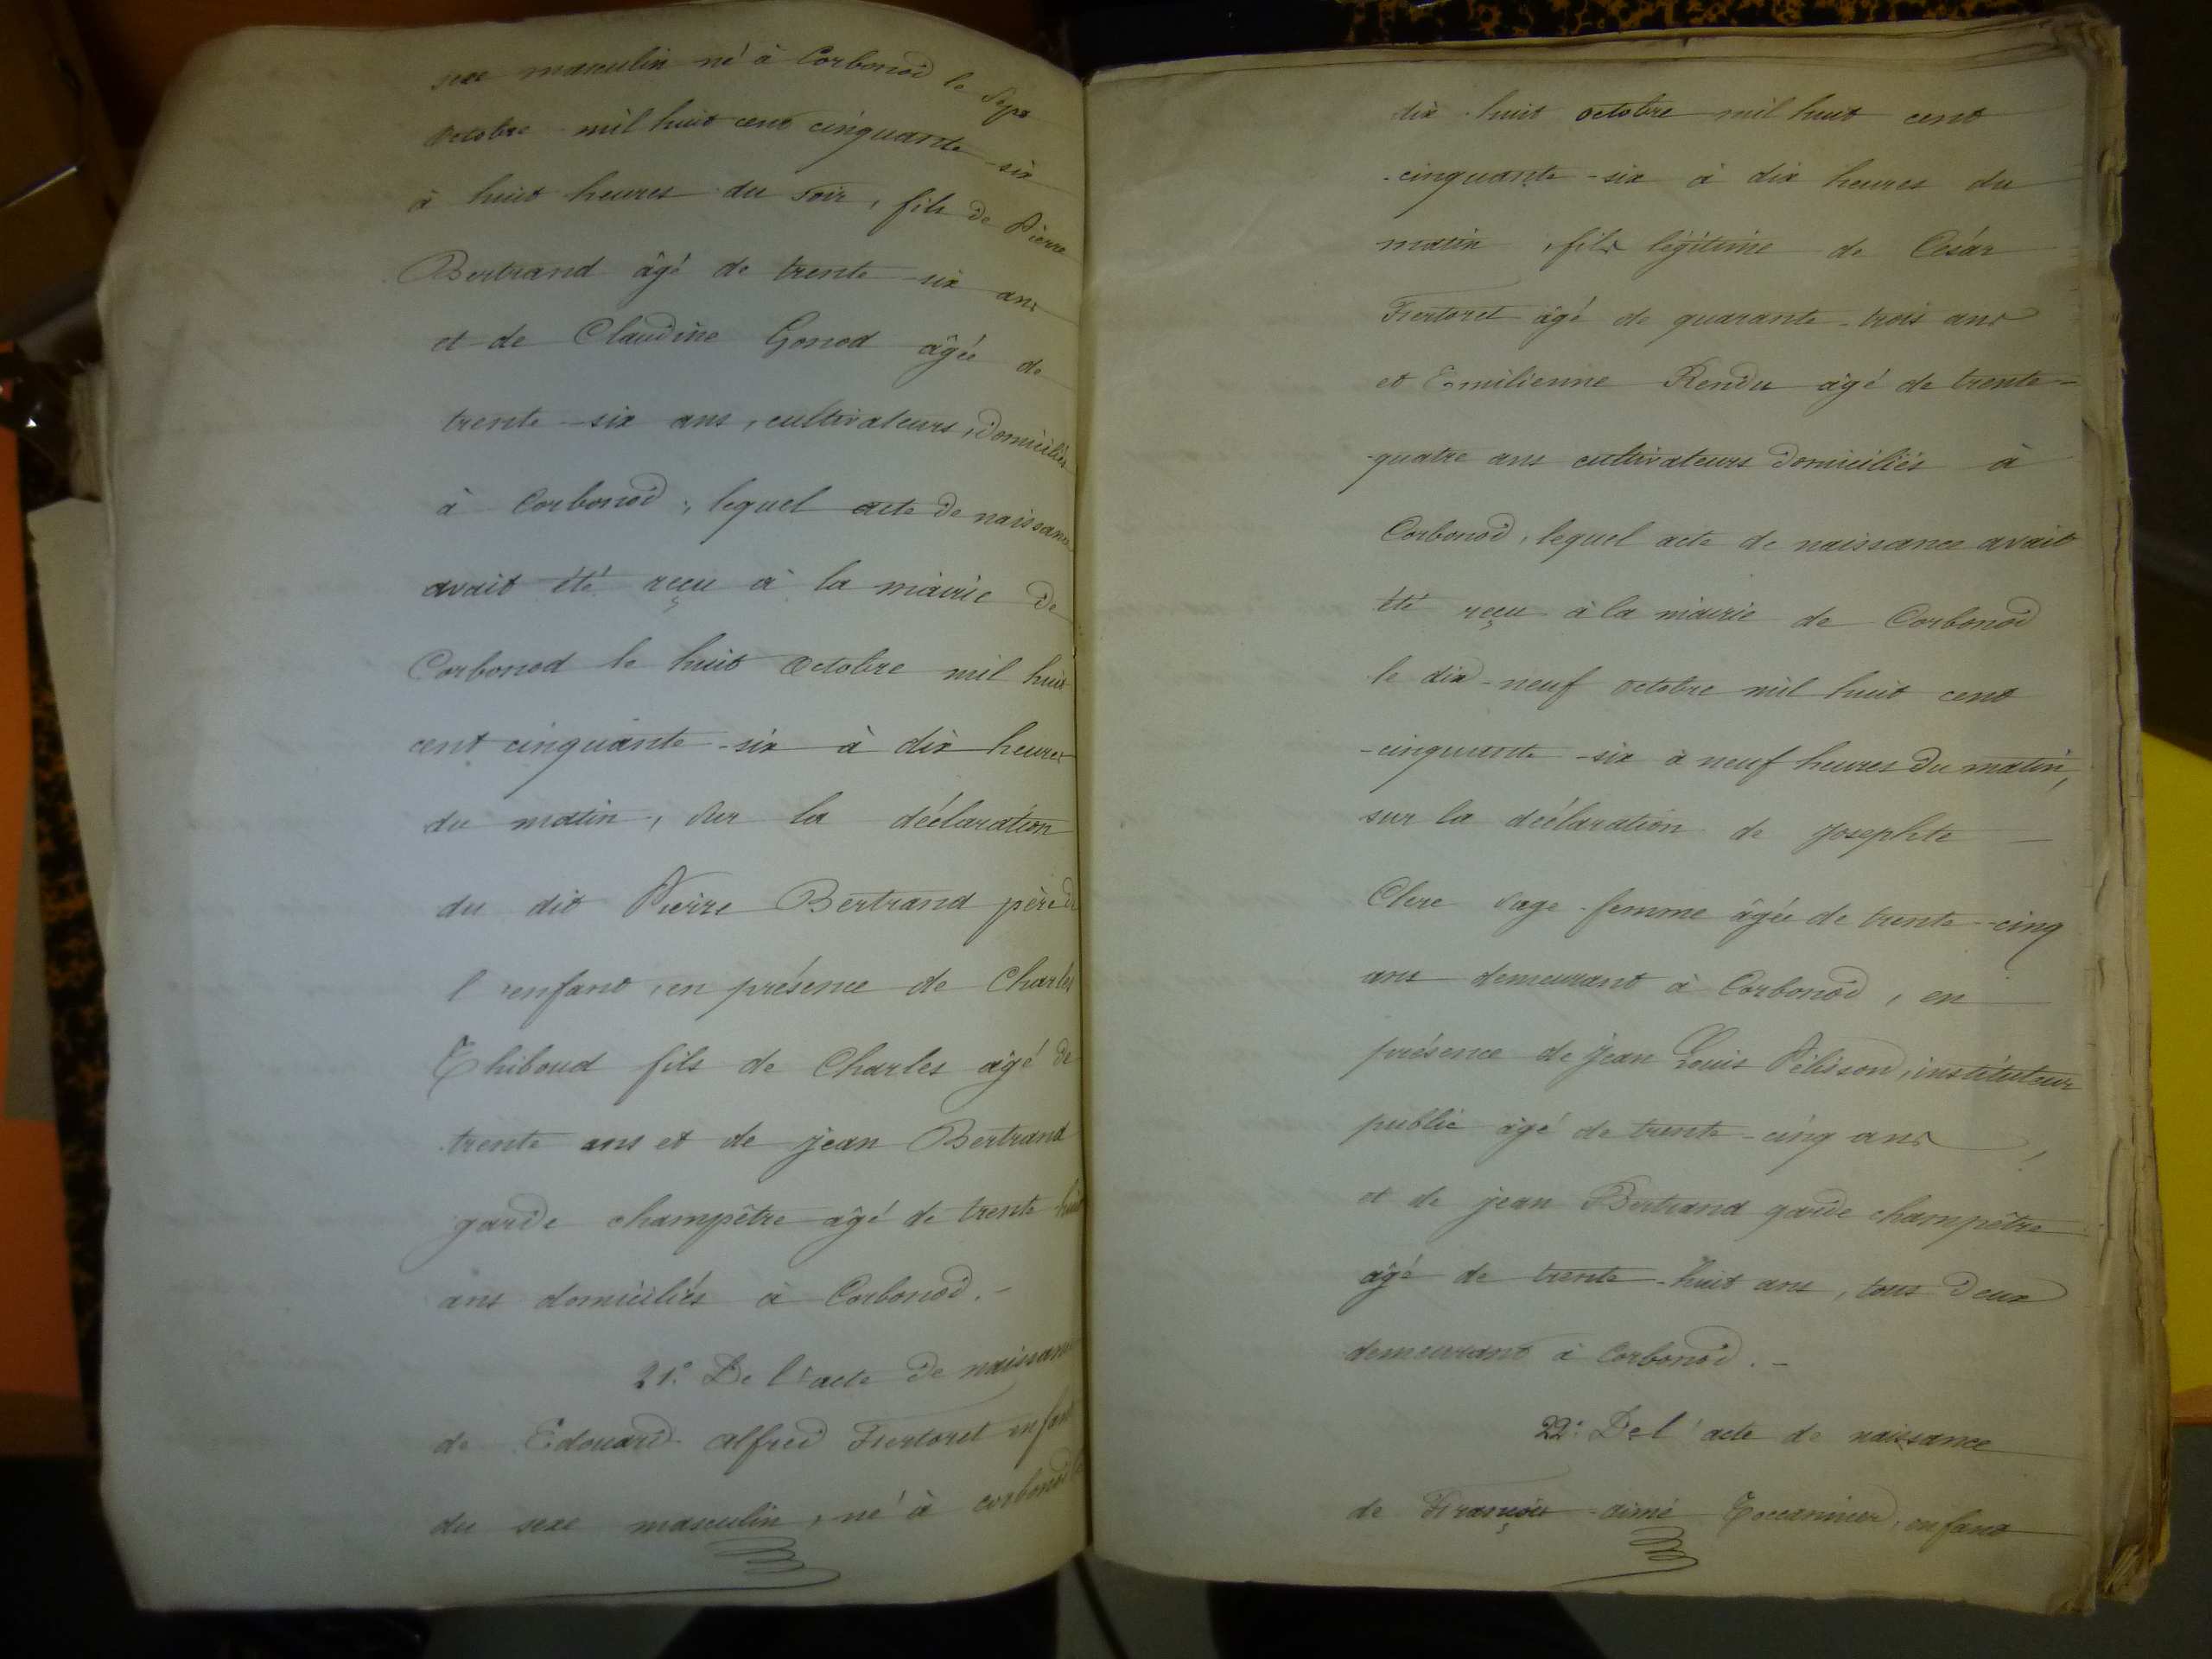 sexe masculin né à Corbonod le sept
octobre mil huit cent cinquante-six
à huit heures du soir, fils de Pierre
Bertrand âgé de trente-six ans
et de Claudine Gonod âgée de
trente-six ans, cultivateurs, domiciliés
à Corbonod, lequel acte de naissance
avait été reçu à la mairie de
Corbonod le huit octobre mil huit
cent cinquante-six à dix heures
du matin, sur la déclaration
du dit Pierre Bertrand père de
l'enfant, en présence de Charles
Thiboud fils de Charles âgé de
trente ans et de jean Bertrand
garde champêtre âgé de trente huit
ans domiciliés à Corbonod.-
21° De l'acte de naissance
de Edouard alfred Fertoret enfant
du sexe masculin, né à corbonod le
dix-huit octobre mil huit cent
cinquante-six à dix heures du
matin, fils légitime de César
Fertoret âgé de quarante-trois ans
et Emilienne Rendu âgé de trente-
quatre ans cultivateurs domiciliés à
Corbonod, lequel acte de naissance avait
été reçu à la mairie de Corbonod
le dix-neuf octobre mil huit cent
cinquante-six à neuf heures du matin,
sur la déclaration de josephte
Clerc sage-femme âgée de trente-cinq
ans demeurant à Corbonod, en
présence de jean Louis Pélisson, instituteur
public âgé de trente-cinq ans,
et de jean Bertrand garde champêtre
âgé de trente-huit ans, tous deux
demeurant à Corbonod.-
22° De l'acte de naissance
de François aimé enfant